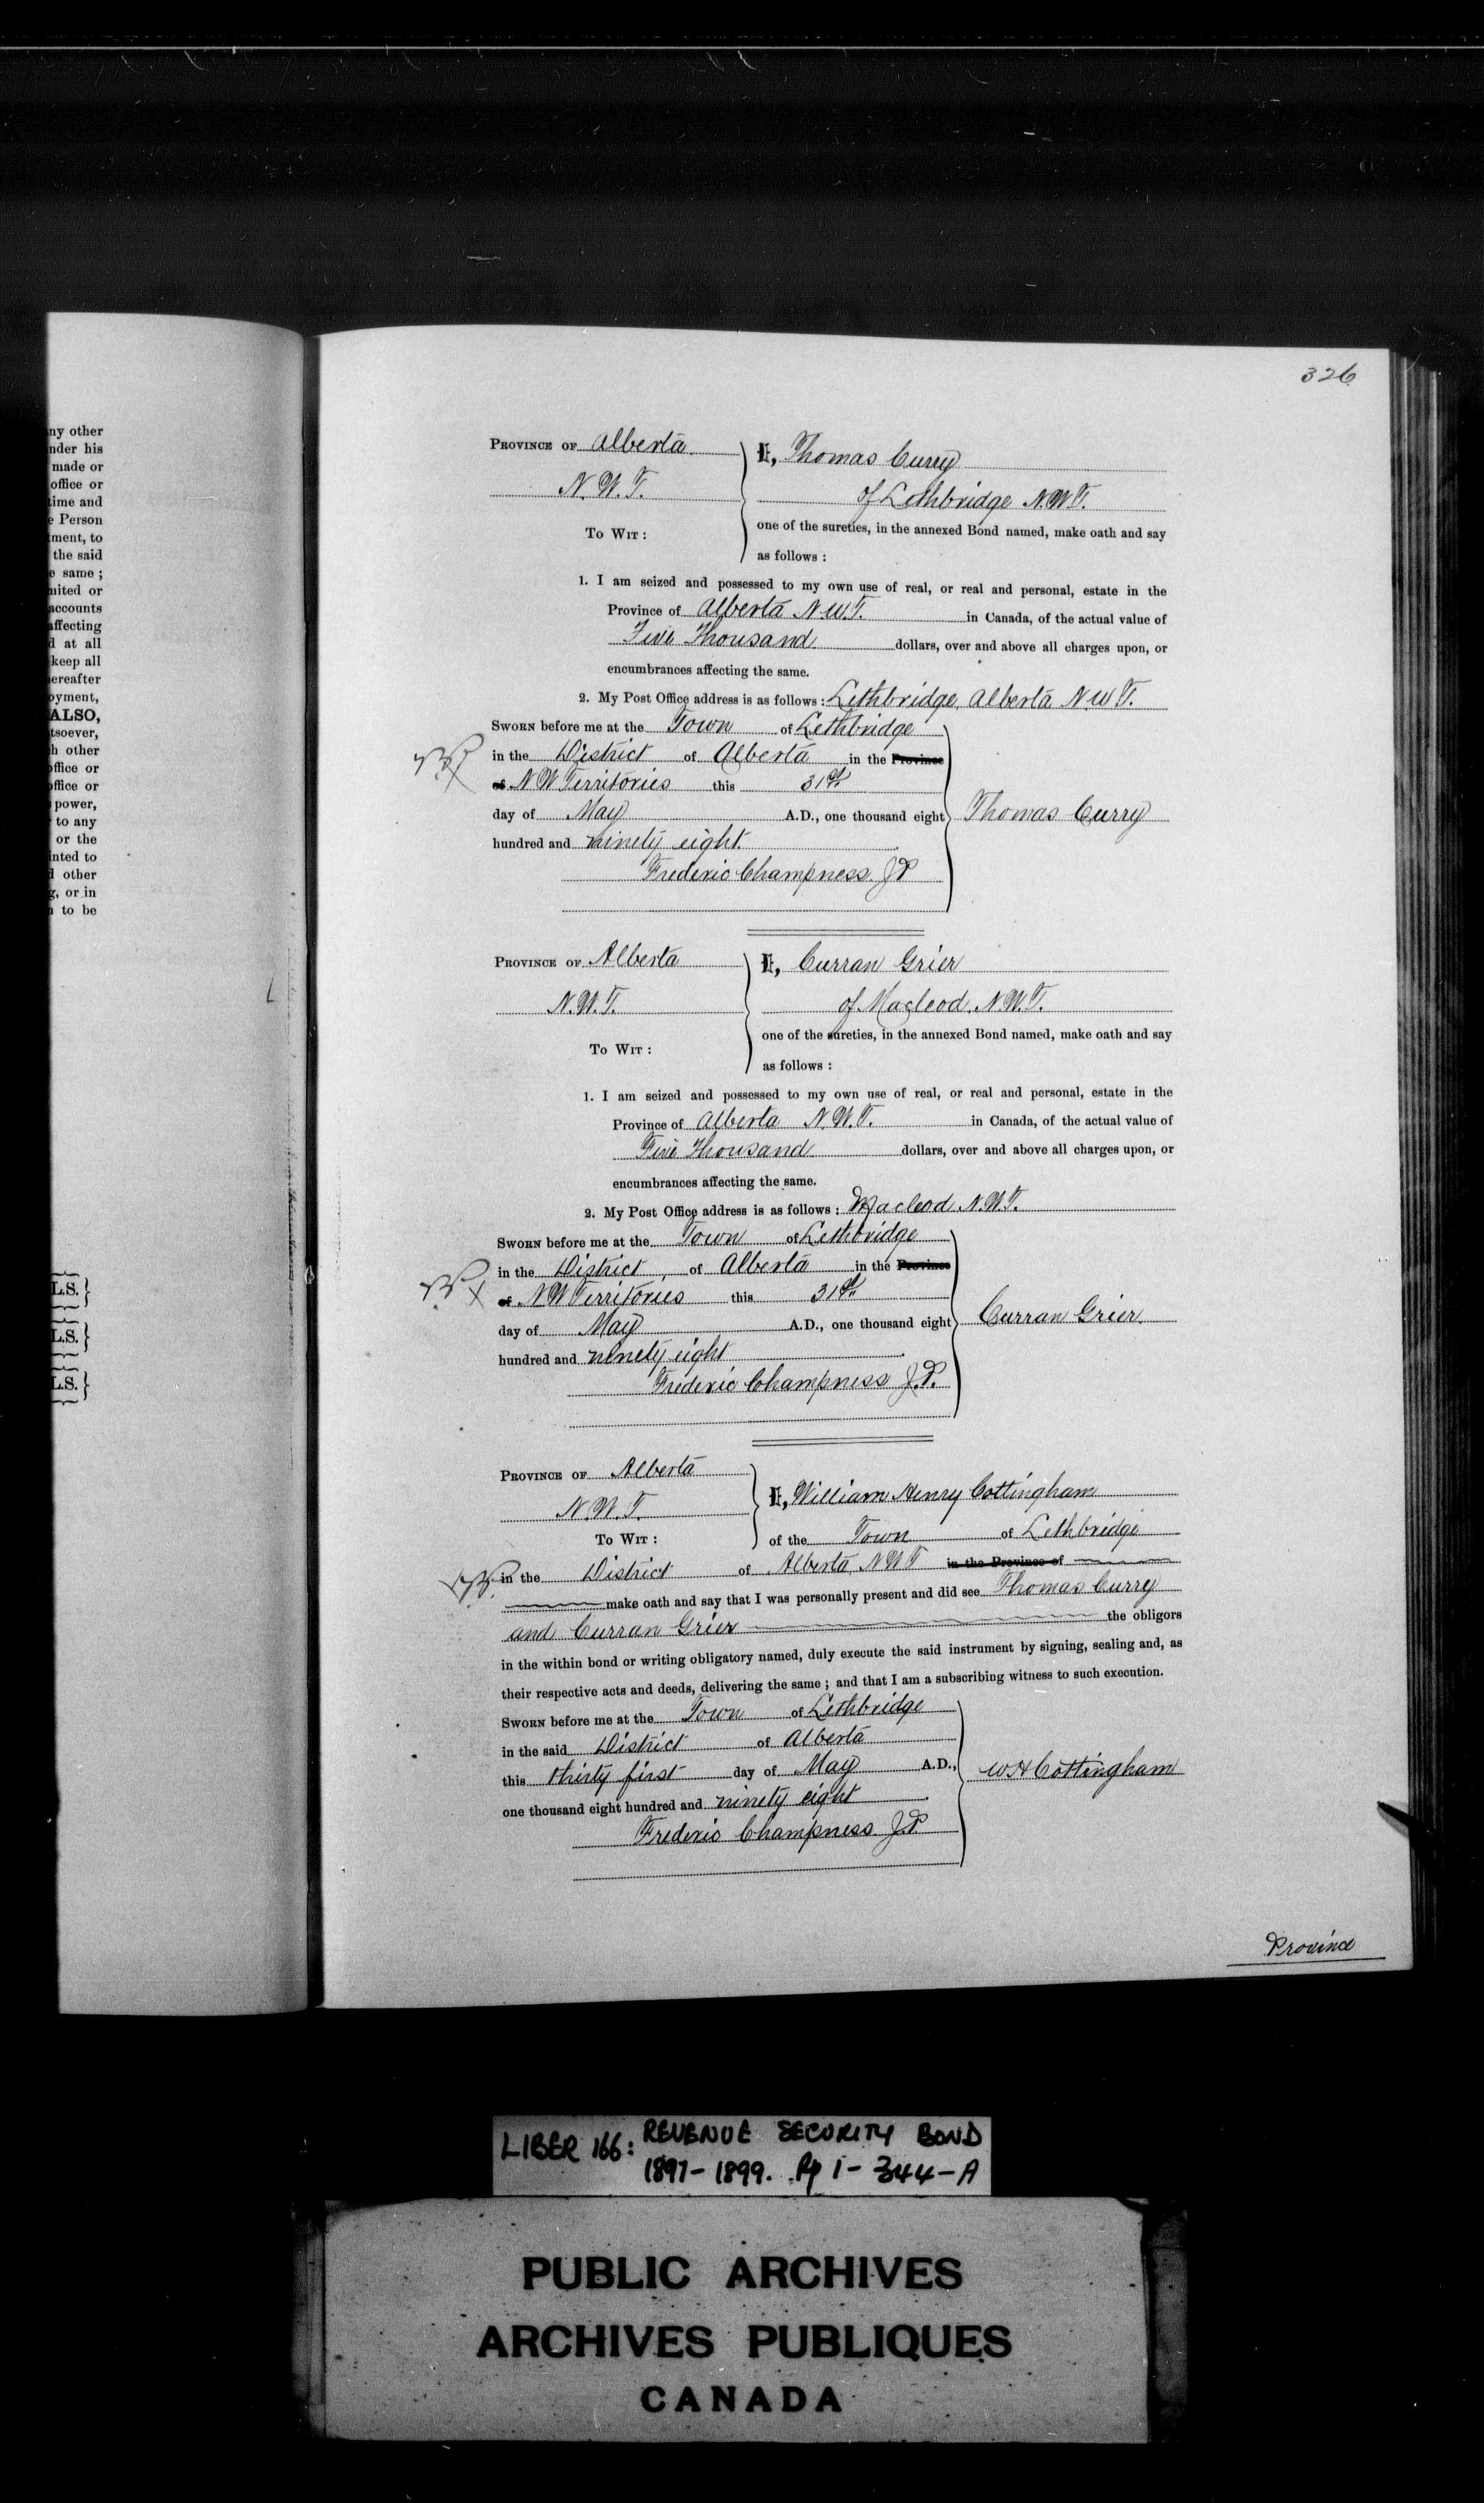 326
ny other
nder his
made or
office or
time and
e Person
ment, to
the said
e same ;
nited or
accounts
affecting
d at all
keep all
ereafter
oyment,
ALSO,
tsoever,
h other
office or
office or
power,
to any
or the
inted to
d other
g, or in
to be
L.S.
L.S.
L.S.
PROVINCE OF Alberta
N.W.T.
TO WIT :
I, Thomas Curry
of Lethbridge N.W.T.
one of the sureties, in the annexed Bond named, make oath and say
as follows :
1. I am seized and possessed to my own use of real, or real and personal, estate in the
Province of Alberta N.W.T. in Canada, of the actual value of
Five Thousand dollars, over and above all charges upon, or
encumbrances affecting the same.
2. My Post Office address is as follows : Lethbridge, Alberta N.W.T.
SWORN before me at the Town of Lethbridge
in the District of Alberta in the Province
of N W Territories this 31st
day of May A.D., one thousand eight
hundred and ninety eight
Frederic Champness J P
Thomas Curry
PROVINCE OF Alberta
N.W.T.
TO WIT :
I, Curran Grier
of Macleod, N.W.T.
one of the sureties, in the annexed Bond named, make oath and say
as follows :
1. I am seized and possessed to my own use of real, or real and personal, estate in the
Province of Alberta N.W.T. in Canada, of the actual value of
Five Thousand dollars, over and above all charges upon, or
encumbrances affecting the same.
2. My Post Office address is as follows : Macleod N.W.T.
SWORN before me at the Town of Lethbridge
in the District of Alberta in the Province
of N W Territories this 31st
day of May A.D., one thousand eight
hundred and ninety eight
Frederic Champness J.P.
Curran Grier
PROVINCE OF Alberta
N.W.T.
TO WIT :
I, William Henry Cottingham
of the Town of Lethbridge
in the District of Alberta, N W T in the Province of
make oath and say that I was personally present and did see Thomas Curry
and Curran Grier the obligors
in the within bond or writing obligatory named, duly execute the said instrument by signing, sealing and, as
their respective acts and deeds, delivering the same ; and that I am a subscribing witness to such execution.
SWORN before me at the Town of Lethbridge
in the said District of Alberta
this thirty first day of May A.D.,
one thousand eight hundred and ninety eight
Frederic Champness J P
W H Cottingham
Province
LIBER 166: REVENUE SECURITY BOND
1897-1899. Pp 1-344-A
PUBLIC ARCHIVES
ARCHIVES PUBLIQUES
CANADA